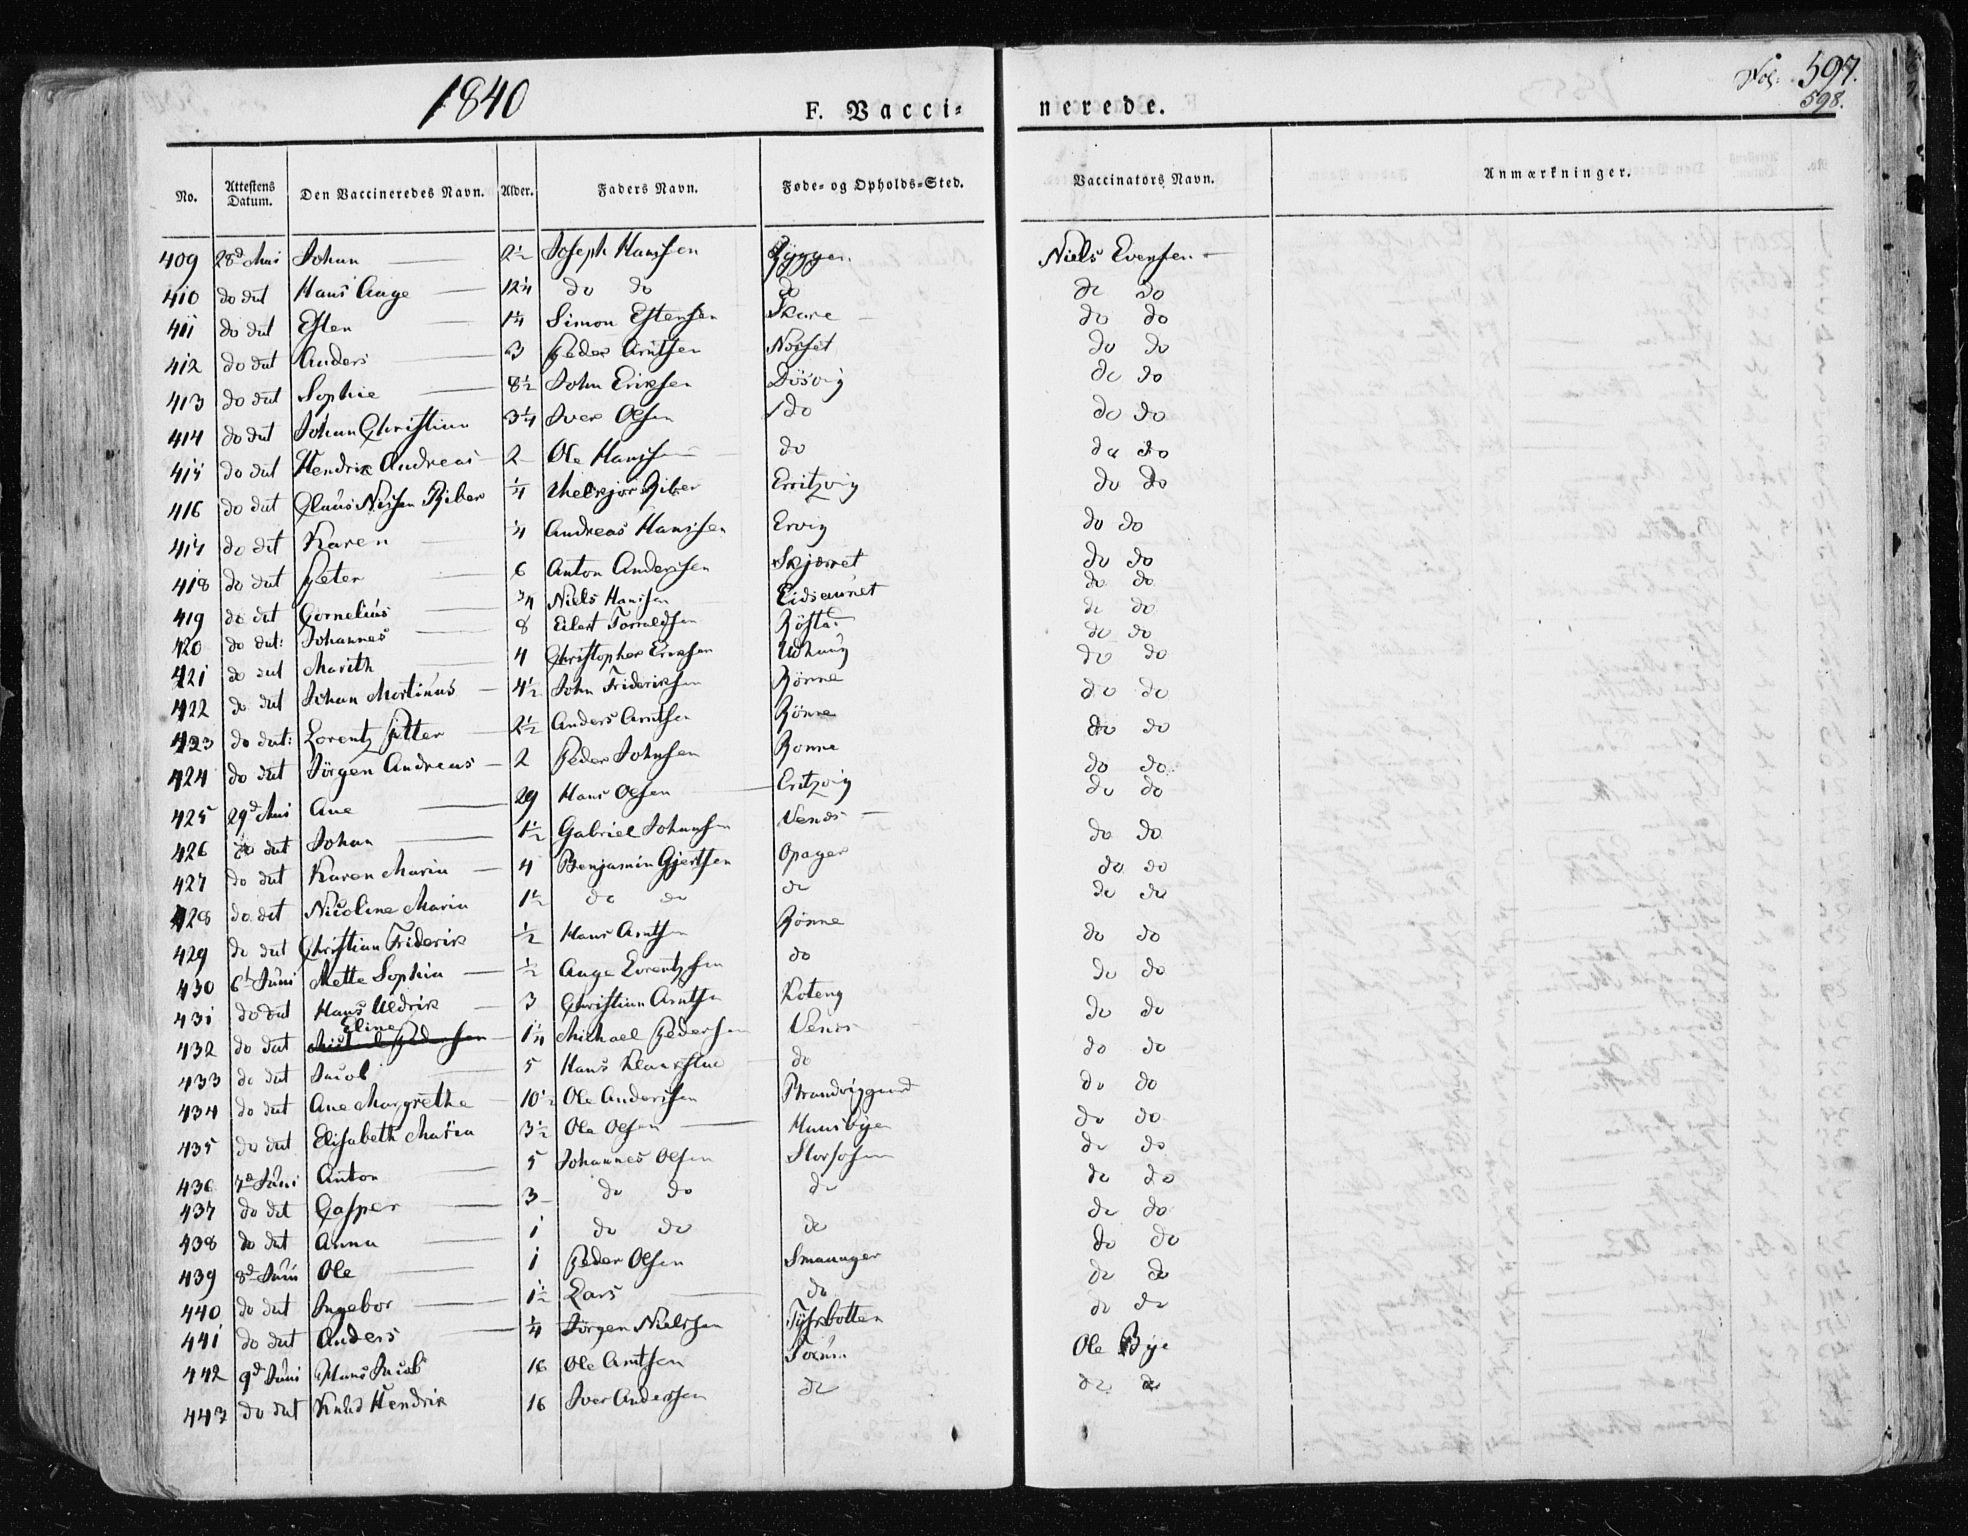 1840
F. Vacci-
nerede.
Fol: 597.
598.
No. Attestens Datum. Den Vaccineredes Navn. Alder. Faders Navn. Føde- og Opholds-Sted. Vaccinators Navn. Anmærkninger.
409 28d Mai Johan 2½ Joseph Hansen Niels Evensen
410 do dat Hans Aage 12¼ do do do do do
411 do dat Esten 1¼ Simon Estensen Skare do do
412 do dat Anders 3 Peder Arntsen Nösset do do
413 do dat Sophie 8½ John Eriksen Dösvig do do
414 do dat Johan Christian 3¼ Iver Olsen do do do
415 do dat Hendrik Andreas 2 Ole Hansen do do do
416 do dat Claus Nissen Riber ¼ Riber Erritzvig do do
417 do dat Karen ¼ Andreas Hansen Ervig do do
418 do dat Peter 6 Anton Andersen Skjærret do do
419 do dat Cornelius ¾ Niels Hansen Eidsaunet do do
420 do dat: Johannes 8 Eilert Torraldsen Röstad do do
421 do dat Marith 4 Christopher Eriksen Udhaug do do
422 do dat Johan Mortinus 4½ John Frideriksen Rönne do do
423 do dat: Lorentz Petter 2½ Anders Arntsen Rönne do do
424 do dat Jörgen Andreas 2 Peder Johnsen Rönne do do
425 29d Mai Ane 29 Hans Olsen Eritzvig do do
426 do dat Johan 1½ Gabriel Johansen Venes do do
427 do dat Karen Maria 4 Benjamin Gjertsen Opager do do
428 do dat Nicoline Maria 1½ do do do do do
429 do dat Christian Friderik ½ Hans Arntsen Rönne do do
430 6t Juni Mette Sophia ½ Aage Lorentzsen do do do
431 do dat Hans Uldrik 3 Christian Arntsen Koteng do do
Eline
432 do dat 1¼ Michael Pedersen Venes do do
433 do dat Jacob 5 Hans do do do
434 do dat Ane Margrethe 10½ Ole Andersen Strandviggaard do do
435 do dat Elisabeth Maria 3½ Ole Olsen Huusbyen do do
436 7d Juni Anton 5 Johannes Olsen Storfosen do do
437 do dat Casper 3 do do do do do
438 do dat Anna 1 do do do do do
439 8d Juni Ole 1 Peder Olsen Smaanger do do
440 do dat Ingebor 1½ Lars do do do
441 do dat Anders ¼ Jörgen Nielsen Tyskbotten do do
442 9d Juni Hans Jacob 16 Ole Arntsen Ole Bye
443 do dat Knud Hendrik 16 Iver Andersen do do do